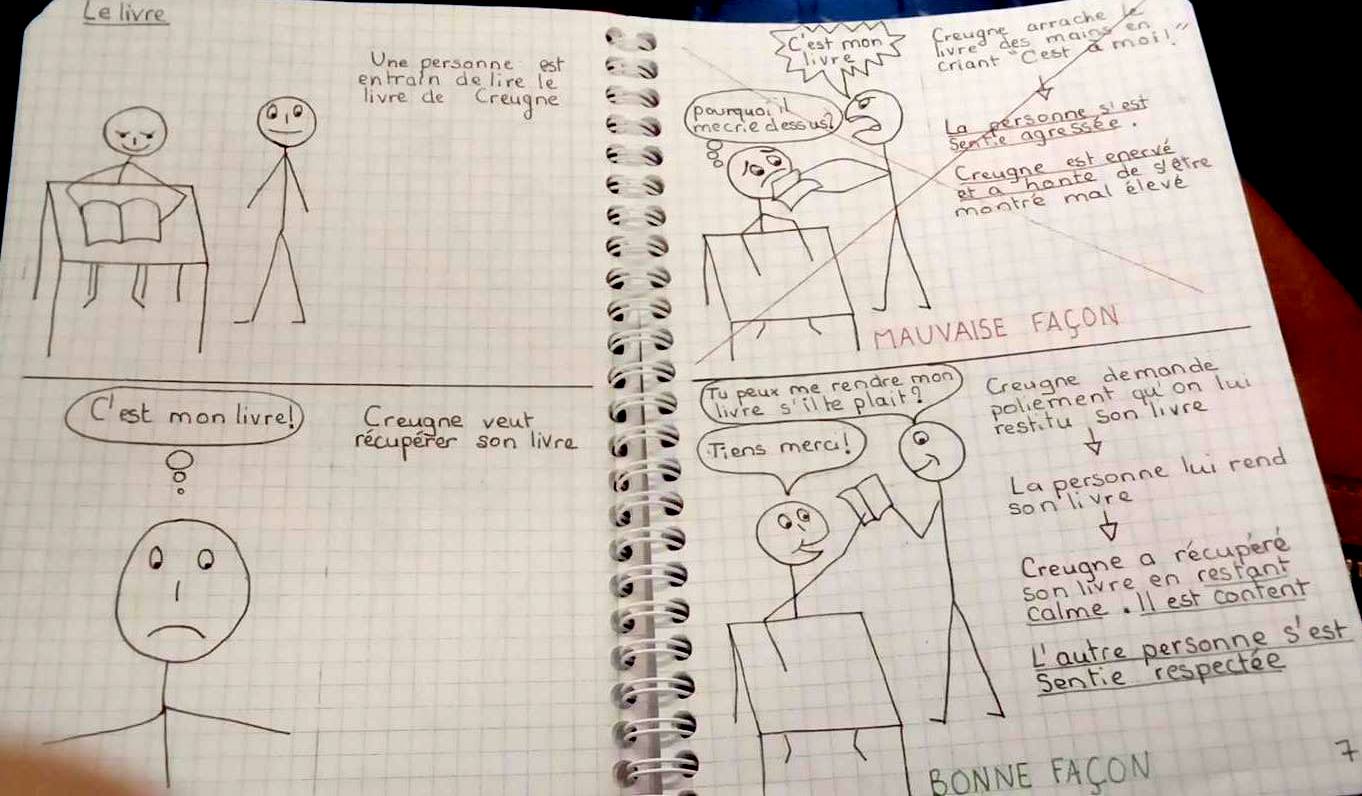 Le livre
Une personne est
entrain de lire le
livre de Creugne
C'est mon livre!
Creugne veut
récupérer son livre
C'est mon
livre
pourquoi il
me crie dessus?
Creugne arrache le
livre des mains en
criant "C'est à moi!"
La personne s'est
Sentie agressée.
Creugne est enervé
et a honte de s'être
montré mal élevé
MAUVAISE FAÇON
Tu peux me rendre mon
livre s'il te plait?
Tiens merci!
Creugne demande
poliement qu'on lui
restitu son livre
La personne lui rend
son livre
Creugne a récupéré
son livre en restant
calme. Il est content
L'autre personne s'est
Sentie respectée
BONNE FAÇON
7